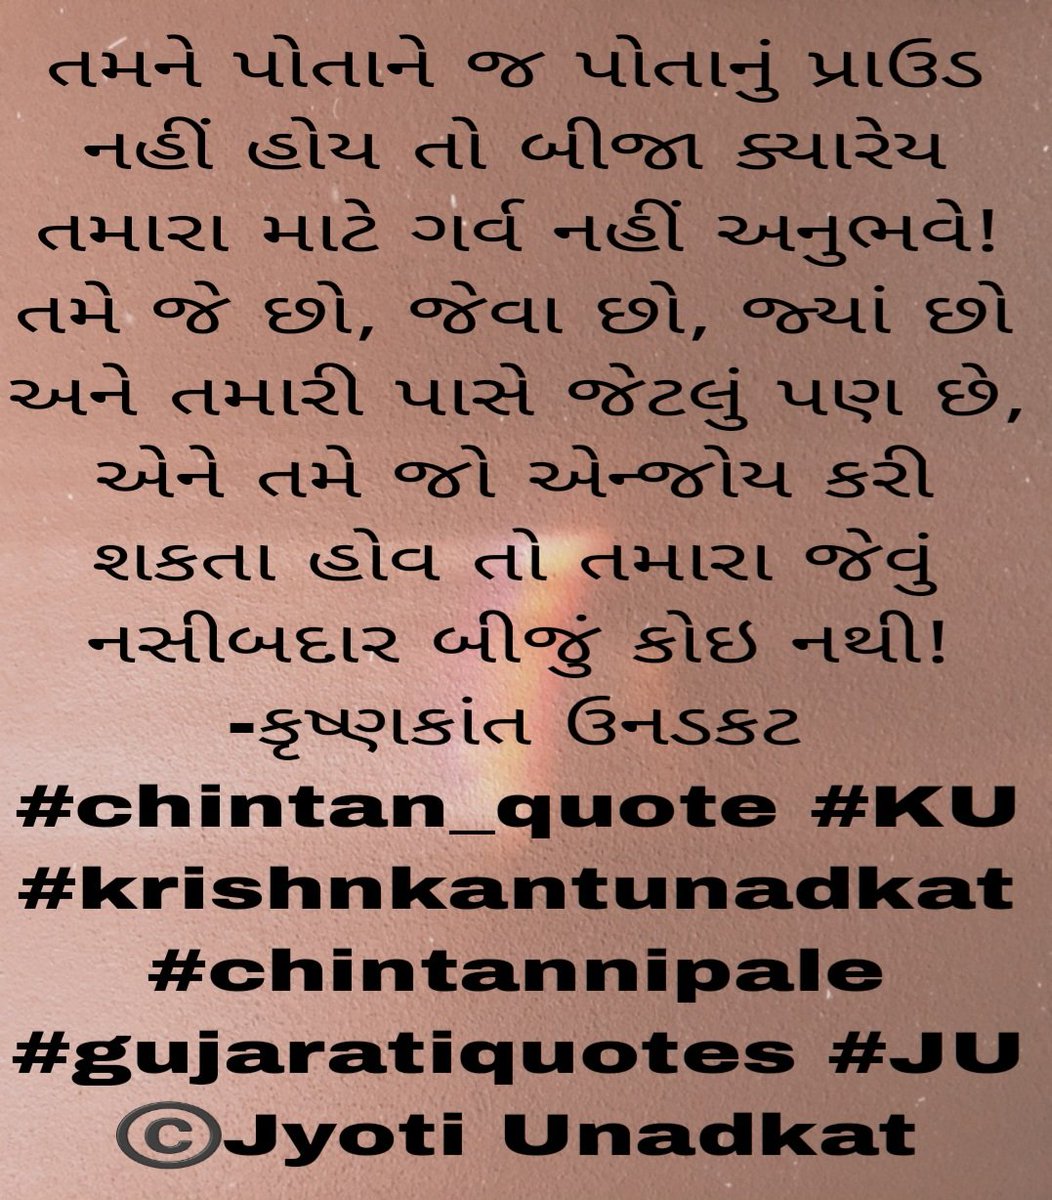 તમને પોતાને જ પોતાનું પ્રાઉડ
નહીં હોય તો બીજા ક્યારેય
તમારા માટે ગર્વ નહીં અનુભવે!
તમે જે છો, જેવા છો, જ્યાં છો
અને તમારી પાસે જેટલું પણ છે,
એને તમે જો એન્જોય કરી
શકતા હોવ તો તમારા જેવું
નસીબદાર બીજું કોઇ નથી!
-કૃષ્ણકાંત ઉનડકટ
#chintan_quote #KU
#krishnkantunadkat
#chintannipale
#gujaratiquotes #JU
©Jyoti Unadkat